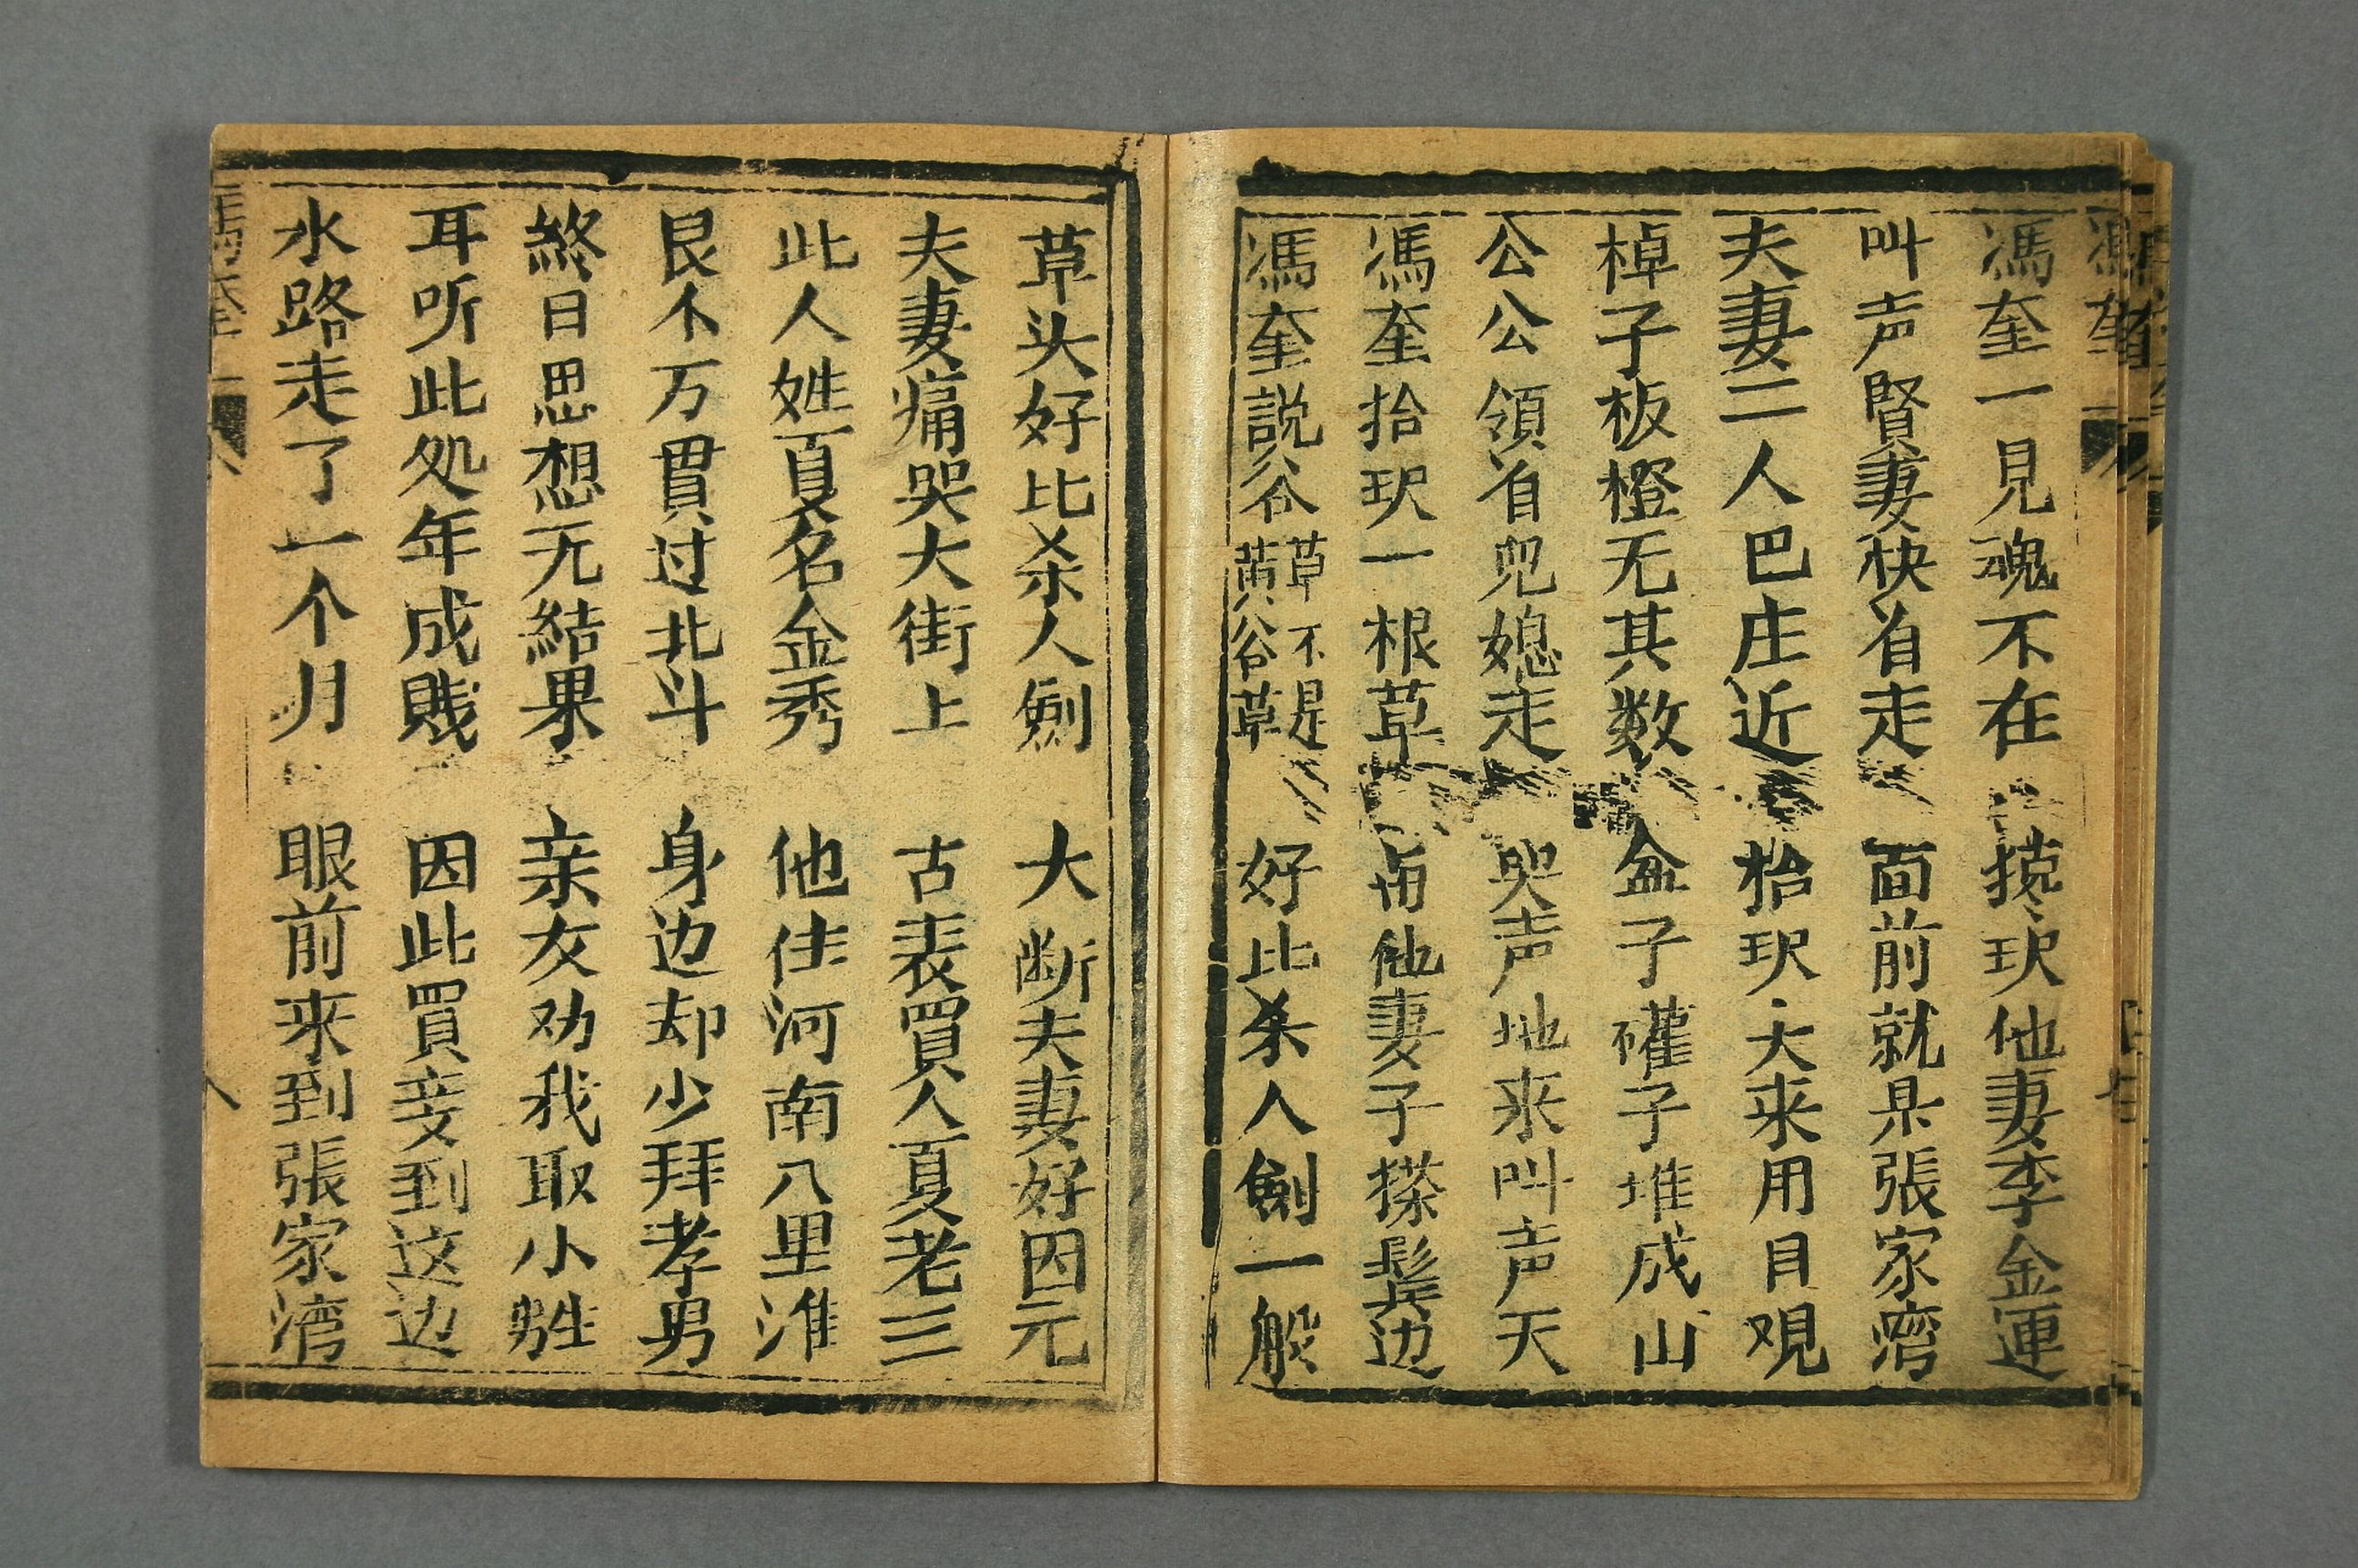 馮奎一見魂不在 攙扶他妻李金蓮
叫声賢妻快肖走 面前就是張家湾
夫妻二人巴庄近 抬玌大来用目观
棹子板橙无其数 盆子確子堆成山
公公領肖兒媳走 哭声地来叫声天
馮奎拾玌一根草 与他妻子搽鬓边
馮奎説谷草不是黄谷草 好比杀人劍一般
草头好比杀人劍 大断夫妻好因元
夫妻痛哭大街上 古表買人夏老三
此人姓夏名金秀 他住河南八里淮
艮不万貫过北斗 身边却少拜孝男
終日思想无結果 亲友劝我取小胜
耳听此処年成賎 因此買妾到这边
水路走了一个月 眼前来到張家湾
馮奎